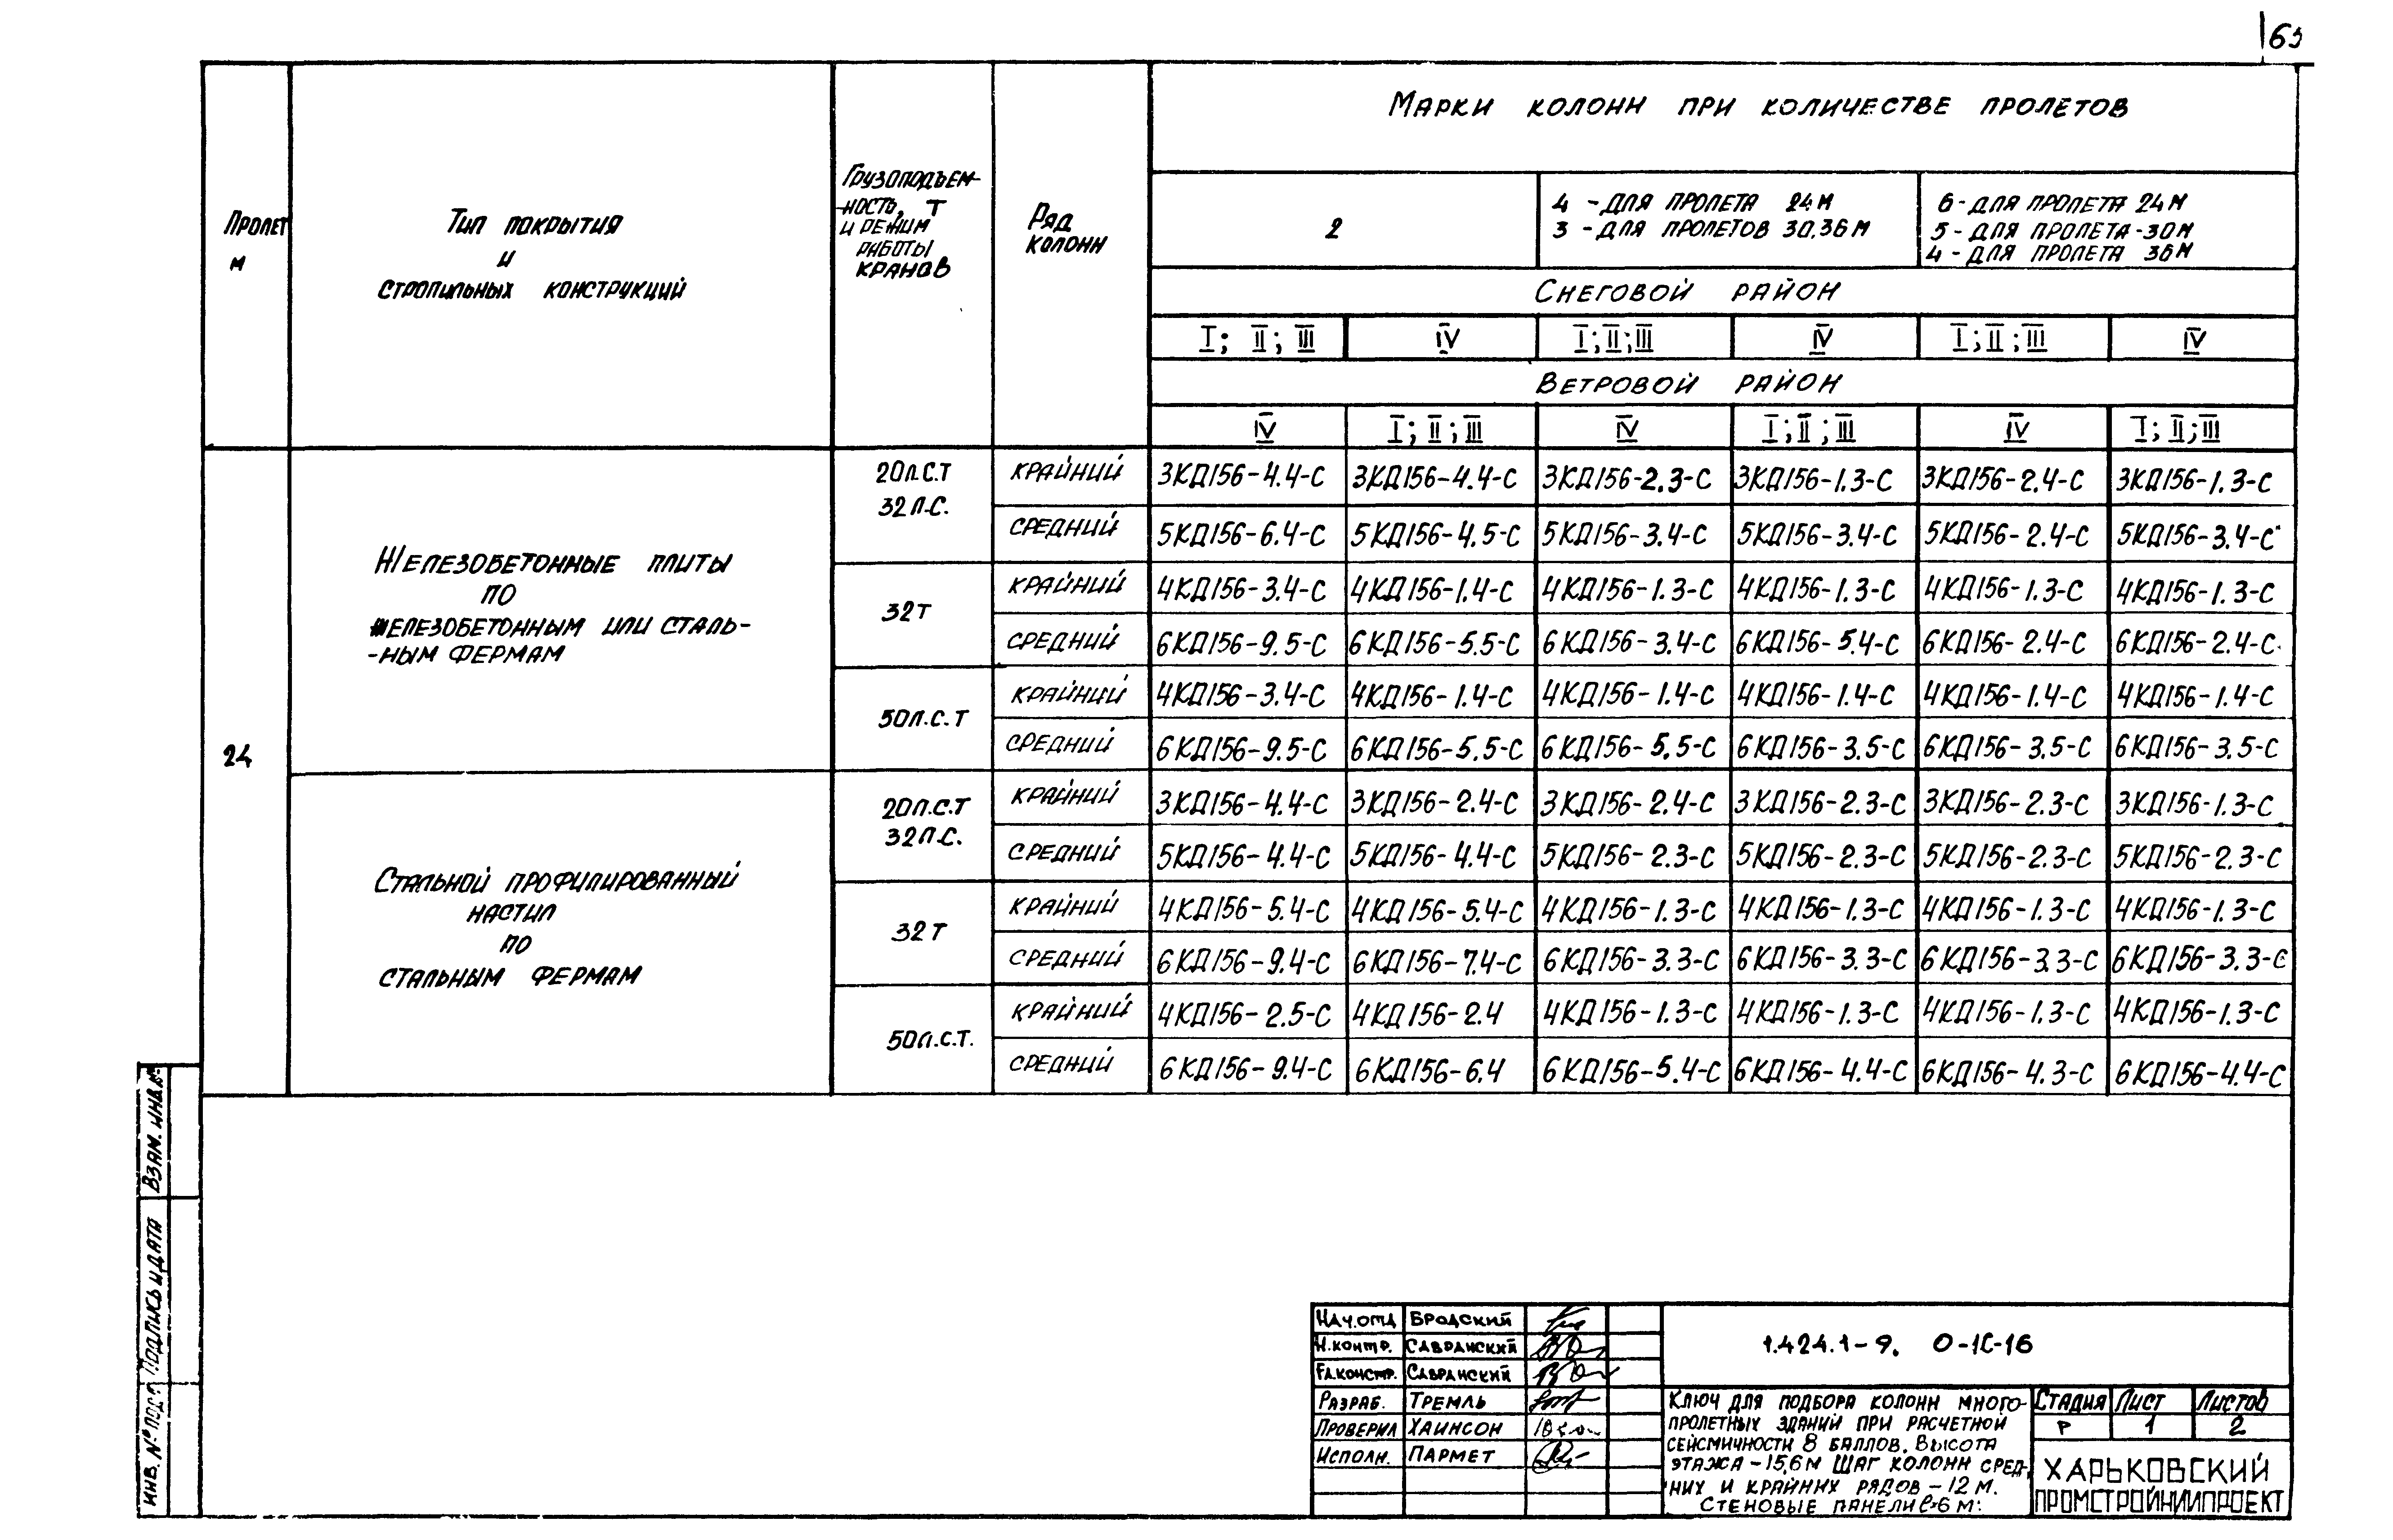 63
Пролет
м
Тип покрытия
и
стропильных конструкций
Грузоподъем-
-ность, т
и режим
работы
кранов
Ряд
колонн
Марки колонн при количестве пролетов
2
4 - для пролета 24 м
3 - для пролетов 30,36 м
6 - для пролета 24 м
5 - для пролета - 30 м
4 - для пролета 36 м
Снеговой район
I; II; III IV I; II; III IV I; II; III IV
Ветровой район
IV I; II; III IV I; II; III IV I; II; III
24
Железобетонные плиты
по
железобетонным или сталь-
-ным фермам
20п.с.т
32п.с.
крайний 3КД156-4.4-С 3КД156-4.4-С 3КД156-2.3-С 3КД156-1.3-С 3КД156-2.4-С 3КД156-1.3-С
средний 5КД156-6.4-С 5КД156-4.5-С 5КД156-3.4-С 5КД156-3.4-С 5КД156-2.4-С 5КД156-3.4-С
32т
крайний 4КД156-3.4-С 4КД156-1.4-С 4КД156-1.3-С 4КД156-1.3-С 4КД156-1.3-С 4КД156-1.3-С
средний 6КД156-9.5-С 6КД156-5.5-С 6КД156-3.4-С 6КД156-5.4-С 6КД156-2.4-С 6КД156-2.4-С
50п.с.т
крайний 4КД156-3.4-С 4КД156-1.4-С 4КД156-1.4-С 4КД156-1.4-С 4КД156-1.4-С 4КД156-1.4-С
средний 6КД156-9.5-С 6КД156-5.5-С 6КД156-5.5-С 6КД156-3.5-С 6КД156-3.5-С 6КД156-3.5-С
Стальной профилированный
настил
по
стальным фермам
20п.с.т
32п.с.
крайний 3КД156-4.4-С 3КД156-2.4-С 3КД156-2.4-С 3КД156-2.3-С 3КД156-2.3-С 3КД156-1.3-С
средний 5КД156-4.4-С 5КД156-4.4-С 5КД156-2.3-С 5КД156-2.3-С 5КД156-2.3-С 5КД156-2.3-С
32т
крайний 4КД156-5.4-С 4КД156-5.4-С 4КД156-1.3-С 4КД156-1.3-С 4КД156-1.3-С 4КД156-1.3-С
средний 6КД156-9.4-С 6КД156-7.4-С 6КД156-3.3-С 6КД156-3.3-С 6КД156-3.3-С 6КД156-3.3-С
50п.с.т.
крайний 4КД156-2.5-С 4КД156-2.4 4КД156-1.3-С 4КД156-1.3-С 4КД156-1.3-С 4КД156-1.3-С
средний 6КД156-9.4-С 6КД156-6.4 6КД156-5.4-С 6КД156-4.4-С 6КД156-4.3-С 6КД156-4.4-С
Взам. инв.№
Подпись и дата
Инв. № подл
Нач.отд Бродский
Н.контр. Савранский
Гл.констр. Савранский
Разраб. Тремль
Проверил Хаинсон
Исполн. Пармет
1.424.1-9. 0-1С-16
Ключ для подбора колонн много-
пролетных зданий при расчетной
сейсмичности 8 баллов. Высота
этажа - 15,6 м Шаг колонн сред-
них и крайних рядов - 12 м.
Стеновые панели ℓ=6 м.
Стадия Лист Листов
Р 1 2
Харьковский
Промстройниипроект